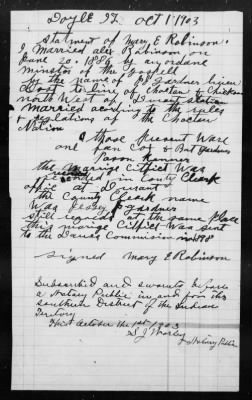 Doyle I.T. Oct 1 1903
Statment of Mary E Robinson
I married Alex Robinson on
June 20. 1886 by an ordane
minister of the Gospell
by the name of
Close to line of Choctaw & Chickasaw
north West of Durant station
married acording to the rules
& regulations of the Choctaw
Nation
those Present Ware
and Bat Gardner
the Marrige Citifict Was
recorded in County Cleark
office at Durant
the County Cleark name
Was Gardner
still recorded at the same place
this marige Citifict was sent
to the Daws Commission 1898
signed Mary E Robinson
Subscribed and sworn to before
a Notary Public in and for the
Southern District of the Indian
Territory
This October the 1st 1903
S J
Notary Public